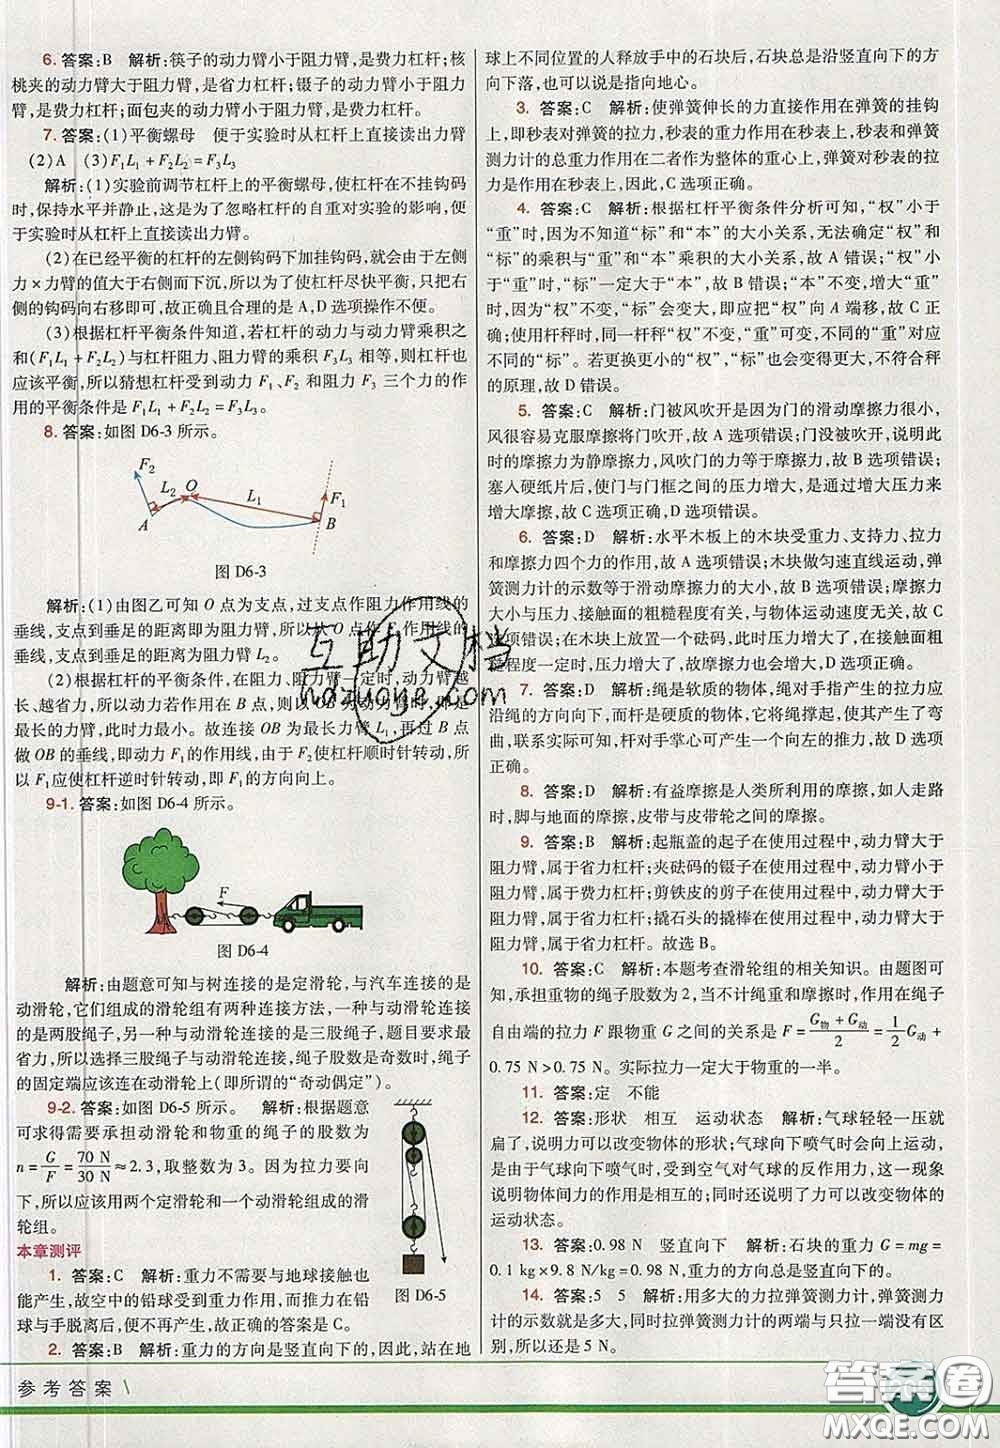 6. 答案:B　解析:筷子的动力臂小于阻力臂,是费力杠杆;核
桃夹的动力臂大于阻力臂,是省力杠杆;镊子的动力臂小于阻力
臂,是费力杠杆;面包夹的动力臂小于阻力臂,是费力杠杆。
7. 答案:(1)平衡螺母　便于实验时从杠杆上直接读出力臂
(2)A　(3)F₁L₁+F₂L₂=F₃L₃
解析:(1)实验前调节杠杆上的平衡螺母,使杠杆在不挂钩码
时,保持水平并静止,这是为了忽略杠杆的自重对实验的影响,便
于实验时从杠杆上直接读出力臂。
(2)在已经平衡的杠杆的左侧钩码下加挂钩码,就会由于左侧
力×力臂的值大于右侧而下沉,所以为了使杠杆尽快平衡,只把右
侧的钩码向右移即可,故正确且合理的是A,D选项操作不便。
(3)根据杠杆平衡条件知道,若杠杆的动力与动力臂乘积之
和(F₁L₁+F₂L₂)与杠杆阻力、阻力臂的乘积F₃L₃相等,则杠杆也
应该平衡,所以猜想杠杆受到动力F₁、F₂和阻力F₃三个力的作
用的平衡条件是F₁L₁+F₂L₂=F₃L₃。
8. 答案:如图D6-3所示。
F₂
L₂ O
L₁
F₁
A
B
图D6-3
解析:(1)由图乙可知O点为支点,过支点作阻力作用线的
垂线,支点到垂足的距离即为阻力臂,所以过O点作F₂作用线的
垂线,支点到垂足的距离为阻力臂L₂。
(2)根据杠杆的平衡条件,在阻力、阻力臂一定时,动力臂越
长、越省力,所以动力若作用在B点,则以OB为动力臂时,是
最长的力臂,此时力最小。故连接OB为最长力臂L₁,再过B点
做OB的垂线,即动力F₁的作用线,由于F₂使杠杆顺时针转动,所
以F₁应使杠杆逆时针转动,即F₁的方向向上。
9-1. 答案:如图D6-4所示。
F
图D6-4
解析:由题意可知与树连接的是定滑轮,与汽车连接的是
动滑轮,它们组成的滑轮组有两种连接方法,一种与动滑轮连接
的是两股绳子,另一种与动滑轮连接的是三股绳子,题目要求最
省力,所以选择三股绳子与动滑轮连接,绳子股数是奇数时,绳子
的固定端应该连在动滑轮上(即所谓的“奇动偶定”)。
9-2. 答案:如图D6-5所示。　解析:根据题意
可求得需要承担动滑轮和物重的绳子的股数为
n=G/F=70 N/30 N≈2.3,取整数为3。因为拉力要向
下,所以应该用两个定滑轮和一个动滑轮组成的滑
轮组。
图D6-5
本章测评
1. 答案:C　解析:重力不需要与地球接触也
能产生,故空中的铅球受到重力作用,而推力在铅
球与手脱离后,便不再产生。故正确的答案是C。
2. 答案:B　解析:重力的方向是竖直向下的,因此,站在地
球上不同位置的人释放手中的石块后,石块总是沿竖直向下的方
向下落,也可以说是指向地心。
3. 答案:C　解析:使弹簧伸长的力直接作用在弹簧的挂钩
上,即秒表对弹簧的拉力,秒表的重力作用在秒表上,秒表和弹簧
测力计的总重力作用在二者作为整体的重心上,弹簧对秒表的拉
力是作用在秒表上,因此,C选项正确。
4. 答案:C　解析:根据杠杆平衡条件分析可知,“权”小于
“重”时,因为不知道“标”和“本”的大小关系,无法确定“权”和
“标”的乘积与“重”和“本”乘积的大小关系,故A错误;“权”小于
“重”时,“标”一定大于“本”,故B错误;“本”不变,增大“重”
时,因为“权”不变,“标”会变大,即应把“权”向A端移,故C正
确;使用杆秤时,同一杆秤“权”不变,“重”可变,不同的“重”对应
不同的“标”。若更换更小的“权”,“标”也会变得更大,不符合秤
的原理,故D错误。
5. 答案:C　解析:门被风吹开是因为门的滑动摩擦力很小,
风很容易克服摩擦将门吹开,故A选项错误;门没被吹开,说明此
时的摩擦力为静摩擦力,风吹门的力等于摩擦力,故B选项错误;
塞入硬纸片后,使门与门框之间的压力增大,是通过增大压力来
增大摩擦,故C选项正确,D选项错误。
6. 答案:D　解析:水平木板上的木块受重力、支持力、拉力
和摩擦力四个力的作用,故A选项错误;木块做匀速直线运动,弹
簧测力计的示数等于滑动摩擦力的大小,故B选项错误;摩擦力
大小与压力、接触面的粗糙程度有关,与物体运动速度无关,故C
选项错误;在木块上放置一个砝码,此时压力增大,在接触面粗
糙程度一定时,压力增大了,故摩擦力也增大了,故D选项正确。
7. 答案:D　解析:绳是软质的物体,绳对手指产生的拉力应
沿绳的方向向下,而杆是硬质的物体,它将绳撑起,使其产生了弯
曲,联系实际可知,杆对手掌心可产生一个向左的推力,故D选项
正确。
8. 答案:D　解析:有益摩擦是人类所利用的摩擦,如人走路
时,脚与地面的摩擦,皮带与皮带轮之间的摩擦。
9. 答案:B　解析:起瓶盖的起子在使用过程中,动力臂大于
阻力臂,属于省力杠杆;夹砝码的镊子在使用过程中,动力臂小于
阻力臂,属于费力杠杆;剪铁皮的剪子在使用过程中,动力臂大于
阻力臂,属于省力杠杆;撬石头的撬棒在使用过程中,动力臂大于
阻力臂,属于省力杠杆。故选B。
10. 答案:C　解析:本题考查滑轮组的相关知识。由题图可
知,承担重物的绳子股数为2,当不计绳重和摩擦时,作用在绳子
自由端的拉力F跟物重G之间的关系是F=(G物+G动)/2=1/2G动+
0.75 N>0.75 N。实际拉力一定大于物重的一半。
11. 答案:定　不能
12. 答案:形状　相互　运动状态　解析:气球轻轻一压就
扁了,说明力可以改变物体的形状;气球向下喷气时会向上运动,
是由于气球向下喷气时,受到空气对气球的反作用力,这一现象
说明物体间力的作用是相互的;同时还说明了力可以改变物体的
运动状态。
13. 答案:0.98 N　竖直向下　解析:石块的重力G=mg=
0.1 kg×9.8 N/kg=0.98 N,重力的方向总是竖直向下的。
14. 答案:5　5　解析:用多大的力拉弹簧测力计,弹簧测力
计的示数就是多大,同时拉弹簧测力计的两端与只拉一端没有区
别,所以还是5 N。
参考答案
互助文档
hdzuoye.com
答案圈
MXQE.COM